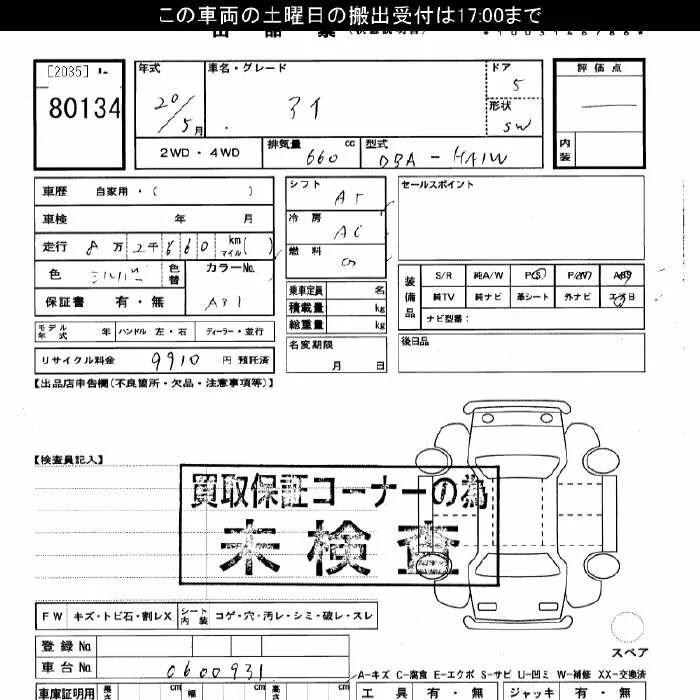 この車両の土曜日の搬出受付は17:00まで
[2035]
80134
年式
20/5月
車名・グレード
アイ
ドア
5
形状
SW
評価点
内装
2WD・4WD
排気量
660
cc
型式
DBA-HA1W
車歴 自家用・( )
車検 年 月
走行 8万2千660 km マイル( )
色
シルバー
色替
カラーNo.
A31
保証書 有・無
モデル年式 年
ハンドル 左・右
ディーラー・並行
リサイクル料金 9910 円 預託済
シフト
AT
冷房
AC
燃料
乗車定員 名
積載量 kg
総重量 kg
名変期限
月 日
セールスポイント
装備品
S/R 純A/W PS P/W ABS
純TV 純ナビ 革シート 外ナビ エアB
ナビ型番:
後日品
【出品店申告欄(不良箇所・欠品・注意事項等)】
【検査員記入】
買取保証コーナーの為
未検査
FW キズ・トビ石・割レX
シート内装 コゲ・穴・汚レ・シミ・破レ・スレ
スペア
登録No.
車台No. 0600931
A-キズ C-腐食 E-エクボ S-サビ U-凹ミ W-補修 XX-交換済
車庫証明用 長さ cm 幅 cm 高さ cm
工具 有・無 ジャッキ 有・無